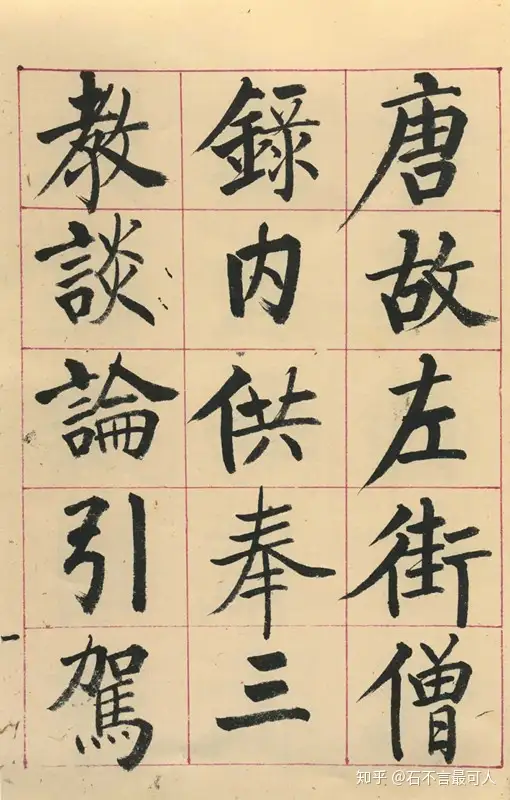 唐故左街僧
錄内供奉三
教談論引駕
一
知乎 @石不言最可人